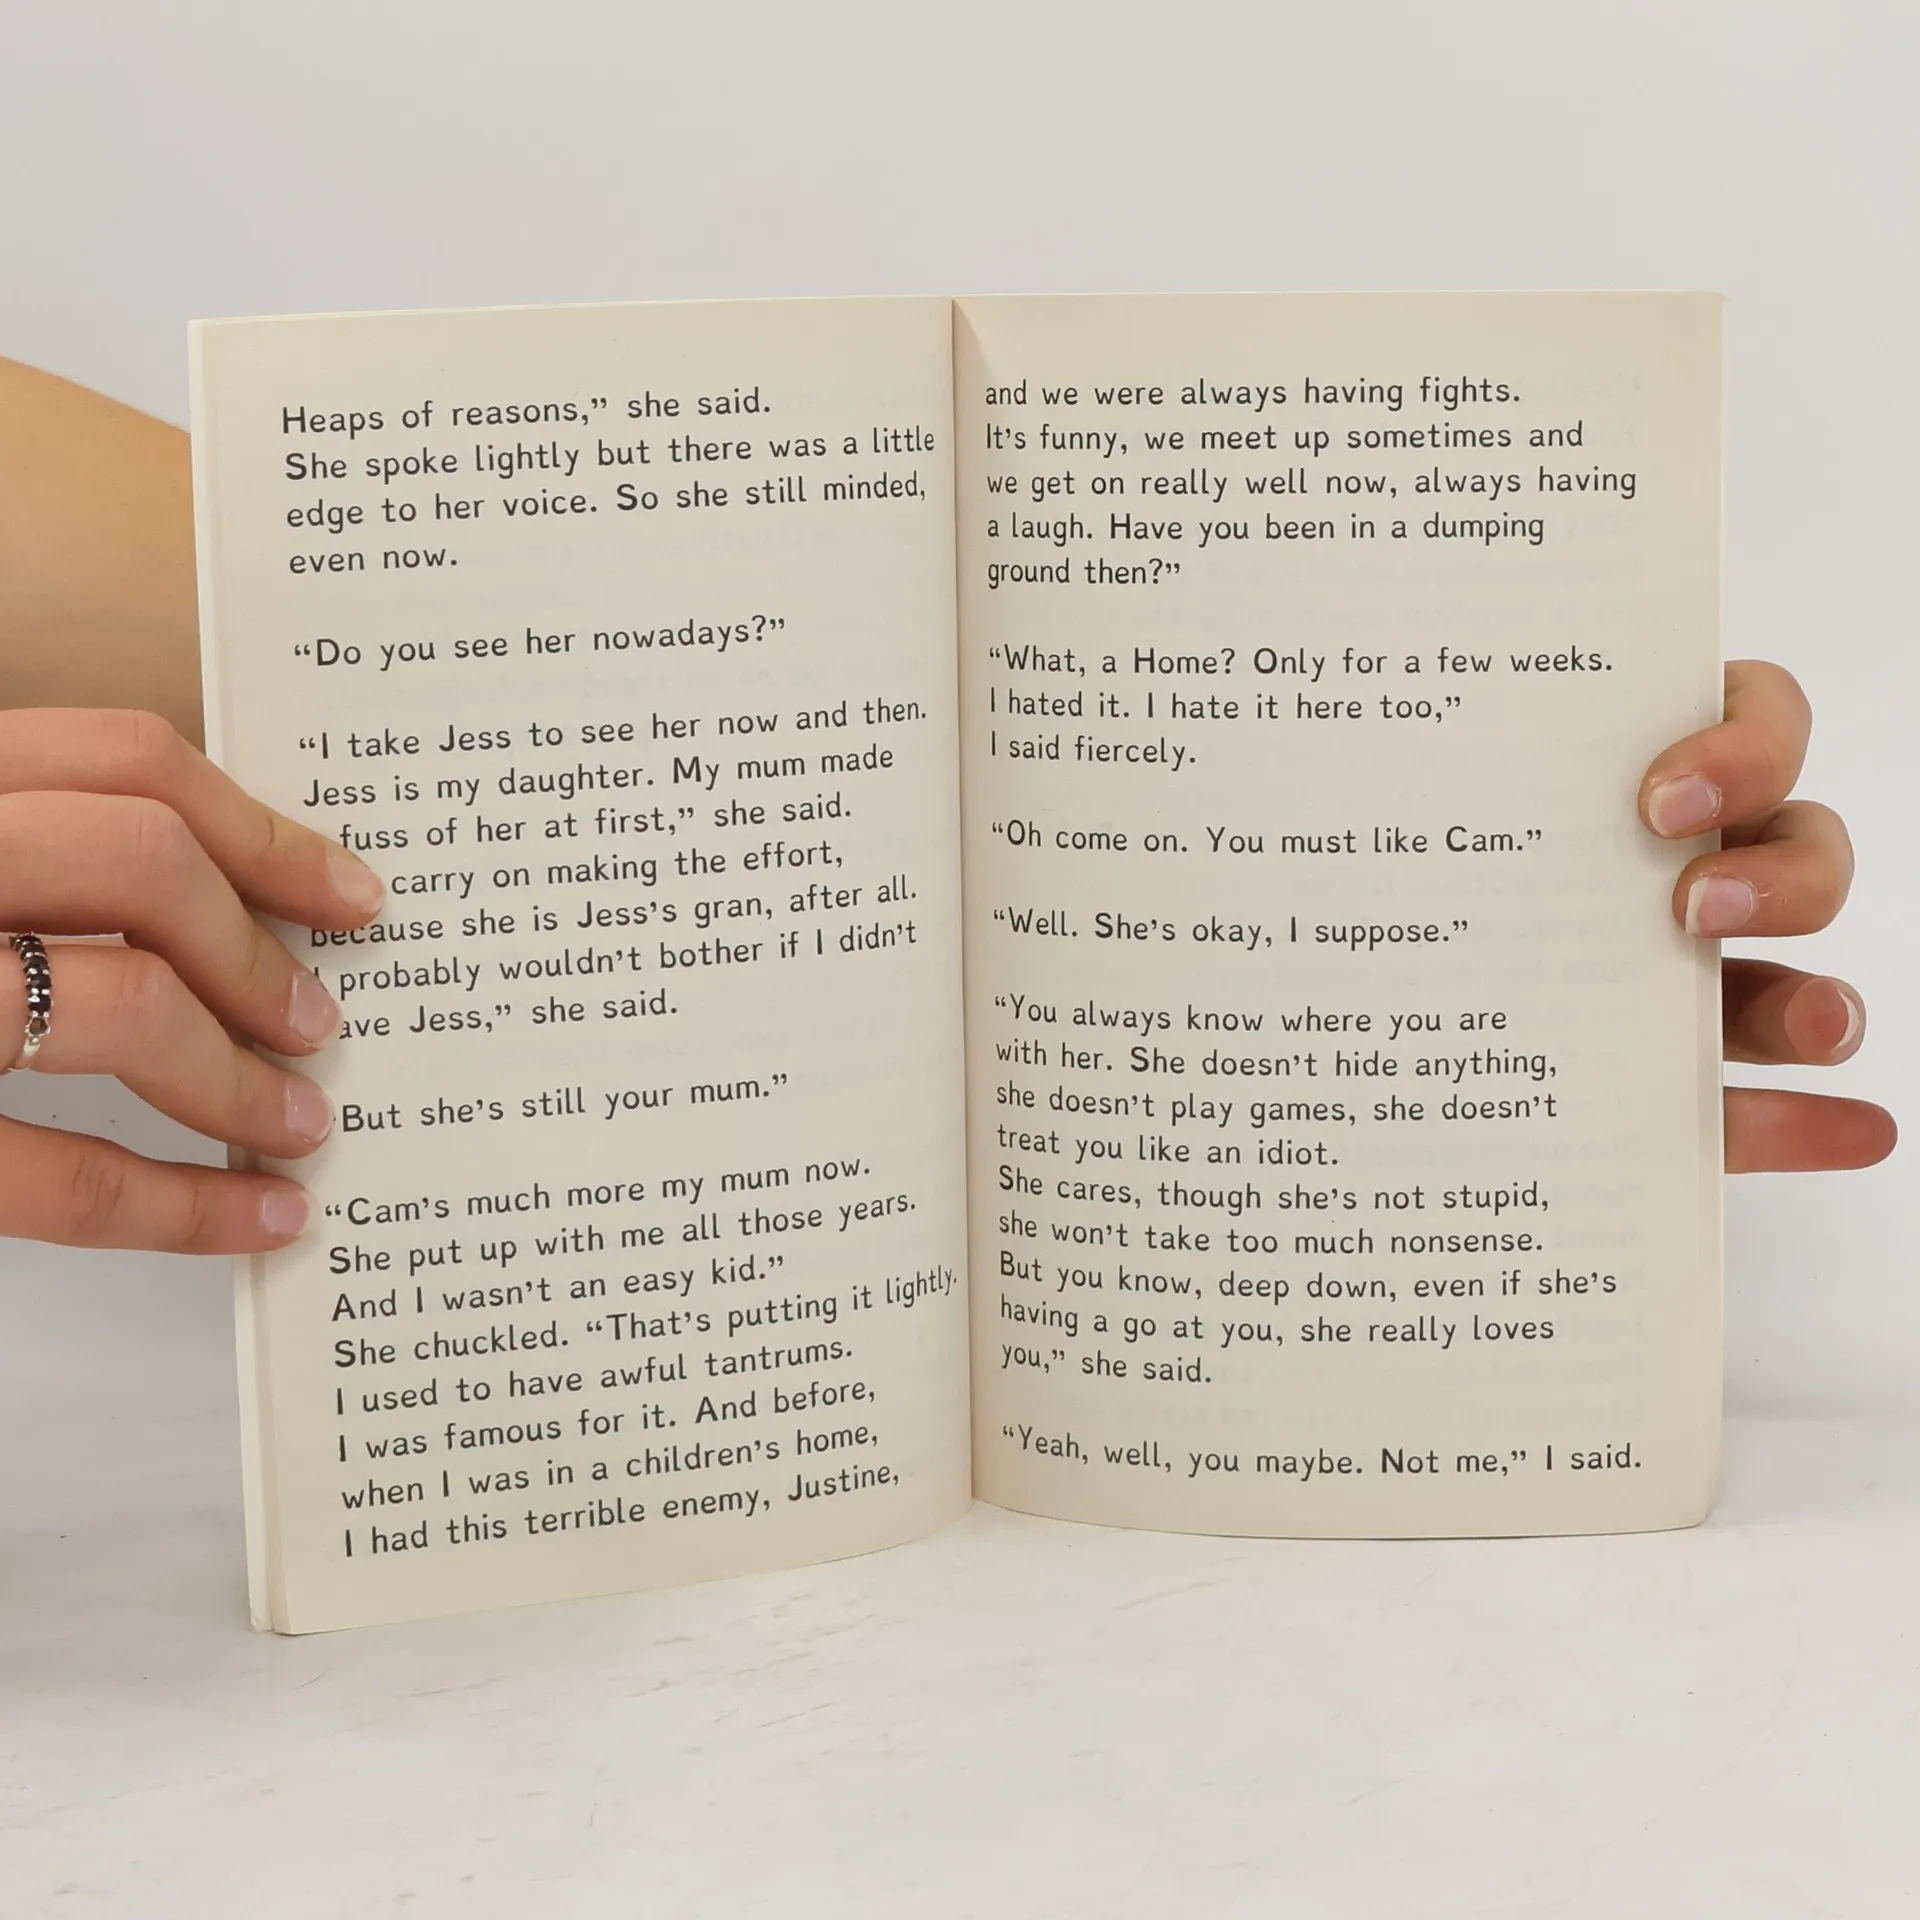 Heaps of reasons,” she said.
She spoke lightly but there was a little
edge to her voice. So she still minded,
even now.
“Do you see her nowadays?”
“I take Jess to see her now and then.
Jess is my daughter. My mum made
fuss of her at first,” she said.
carry on making the effort,
because she is Jess’s gran, after all.
I probably wouldn’t bother if I didn’t
ave Jess,” she said.
But she’s still your mum.”
“Cam’s much more my mum now.
She put up with me all those years.
And I wasn’t an easy kid.”
She chuckled. “That’s putting it lightly.
I used to have awful tantrums.
I was famous for it. And before,
when I was in a children’s home,
I had this terrible enemy, Justine,
and we were always having fights.
It’s funny, we meet up sometimes and
we get on really well now, always having
a laugh. Have you been in a dumping
ground then?”
“What, a Home? Only for a few weeks.
I hated it. I hate it here too,”
I said fiercely.
“Oh come on. You must like Cam.”
“Well. She’s okay, I suppose.”
“You always know where you are
with her. She doesn’t hide anything,
she doesn’t play games, she doesn’t
treat you like an idiot.
She cares, though she’s not stupid,
she won’t take too much nonsense.
But you know, deep down, even if she’s
having a go at you, she really loves
you,” she said.
“Yeah, well, you maybe. Not me,” I said.